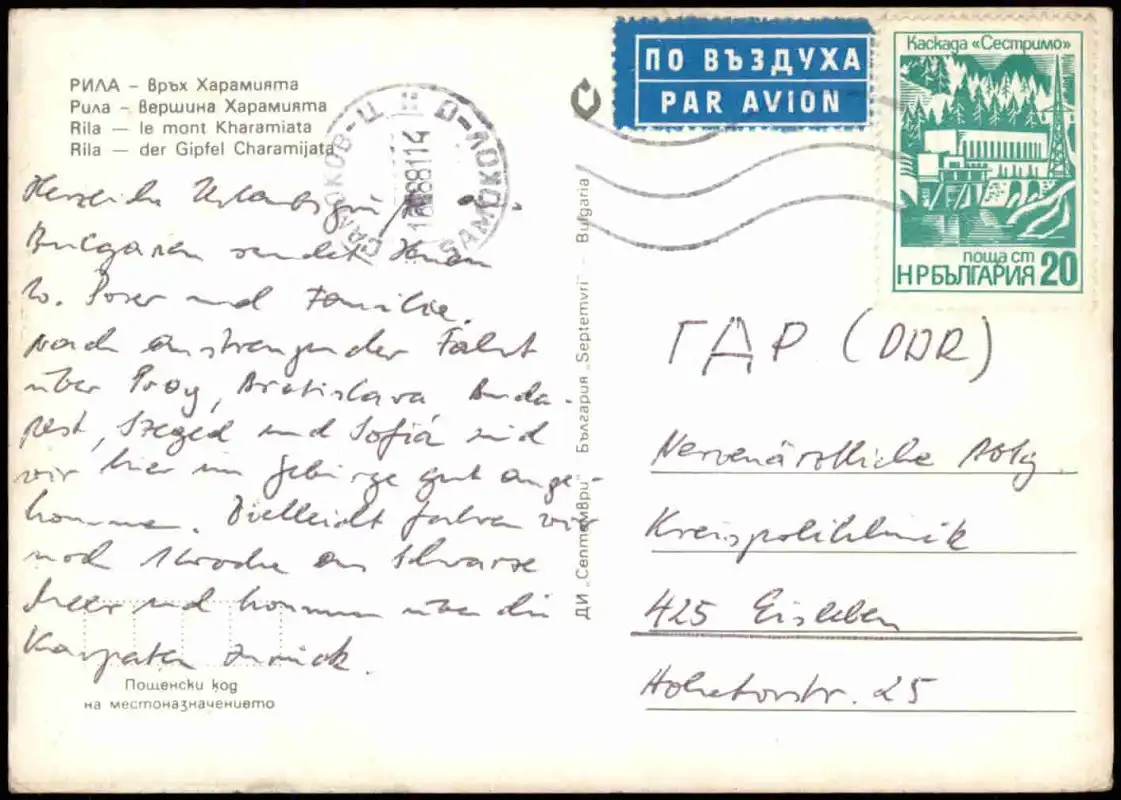 РИЛА – Връх Харамията
Рила – Вершина Харамията
Rila — le mont Kharamiata
Rila — der Gipfel Charamijata
Herzliche Urlaubsgrüße aus
Bulgarien sendet Ihnen
W. Poser und Familie.
Nach anstrengender Fahrt
über Prag, Bratislava Buda-
pest, Szeged und Sofia sind
wir hier im Gebirge gut ange-
kommen. Vielleicht fahren wir
noch 1 Woche an Schwarze
Meer und kommen über die
Karpaten zurück.
Пощенски код
на местоназначението
ДИ „Септември" България „Septemvri" - Bulgaria
САМОКОВ-Ц
SAMOKOV-C
ПО ВЪЗДУХА
PAR AVION
Каскада «Сестримо»
поща ст
НР БЪЛГАРИЯ 20
ГДР (DDR)
Nervenärztliche Abtg.
Kreispoliklinik
425 Eisleben
Hohetorstr. 25